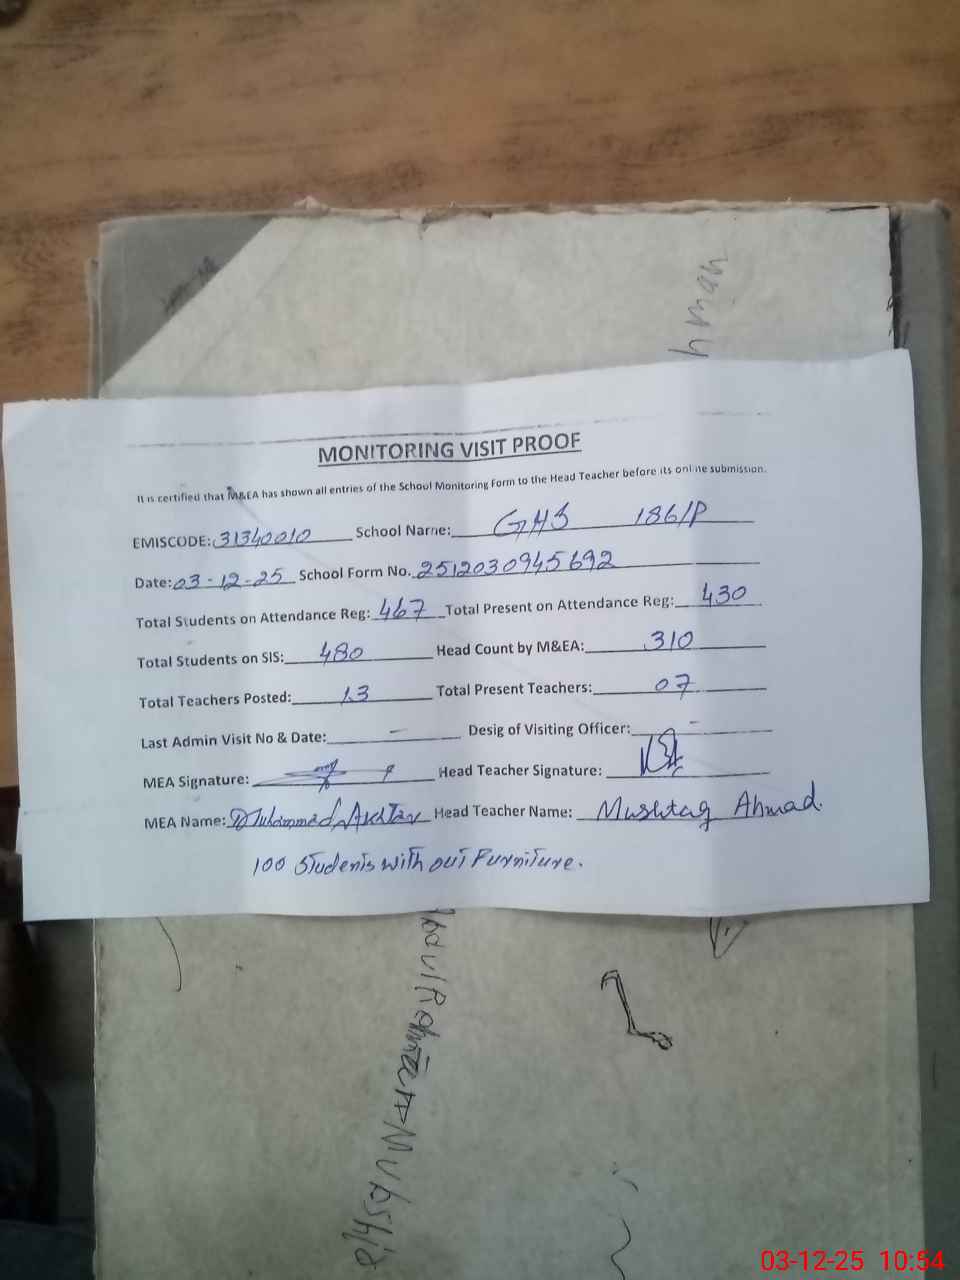 hman
MONITORING VISIT PROOF
It is certified that M&EA has shown all entries of the School Monitoring Form to the Head Teacher before its online submission.
EMISCODE: 31340010 School Name: GHS 186/P
Date: 03-12-25 School Form No. 2512030945692
Total Students on Attendance Reg: 467 Total Present on Attendance Reg: 430
Total Students on SIS: 480 Head Count by M&EA: 310
Total Teachers Posted: 13 Total Present Teachers: 07
Last Admin Visit No & Date: - Desig of Visiting Officer: -
MEA Signature: Head Teacher Signature:
MEA Name: Muhammad Akhtar Head Teacher Name: Mushtaq Ahmad.
100 Students with out Furniture.
03-12-25 10:54